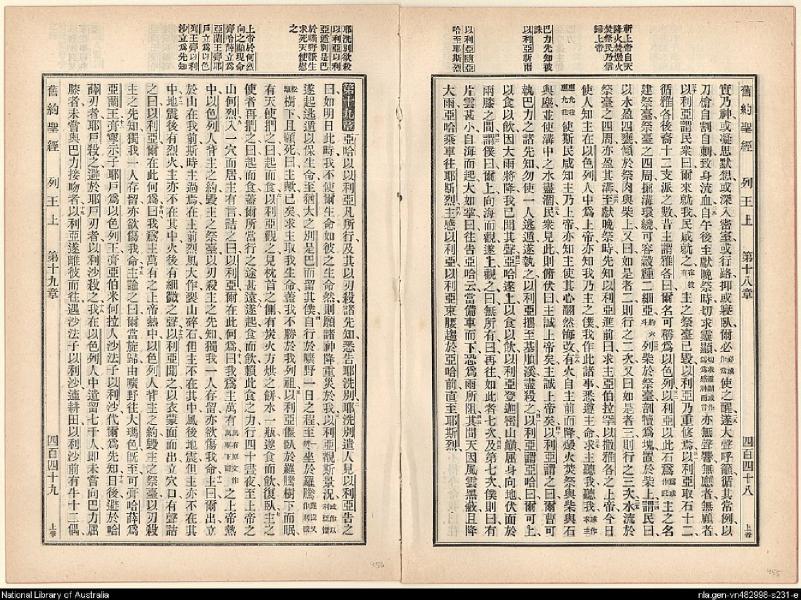 舊約聖經 列王上 第十八章 四百四十八 上卷
巴力先知被
誅
以利亞祈雨
以利亞隨亞
哈至耶斯烈
實乃神或凝思默想或深入密室或行路抑或寢臥爾必使之醒遂大聲呼籲循其常例以
刀槍自割自刺致身流血自午後至獻晚祭時切求靈顯亦無聲響無應者無顧者
以利亞謂民眾曰爾來就我民咸就之主之祭臺已毀以利亞乃重修焉以利亞取石十二
循雅各後裔十二支派之數昔主謂雅各曰爾名可稱為以色列以利亞以此石為主之名
建祭臺祭臺之四周掘溝環繞可容穀種二細亞列柴於祭臺剖犢為塊置於柴上謂民曰
以水盈四甕傾於祭肉與柴上又曰如是者二則行之二次又曰如是者三則行之三次水流於
祭臺之四周亦盈其溝至獻晚祭時先知以利亞進前曰求主亞伯拉罕以撒雅各之上帝今日
使人知主在以色列人中為上帝亦知我乃主之僕我作此諸事悉遵主命求主聽我聽我
使斯民咸知主乃上帝亦知主使其心翻然悔改有火自主前而降燬火焚祭與柴與石
與塵並使溝中之水盡涸民眾見此則俯伏曰主誠上帝矣主誠上帝矣以利亞謂之曰爾曹可
執巴力之諸先知勿使一人逃遁遂執之以利亞攜至基順溪盡殺之以利亞謂亞哈曰爾可上
以食以飲因大雨將降我已聞其聲亞哈遂上以食以飲以利亞登迦密山巔屈身向地伏面於
兩膝之間謂僕曰爾上向海而觀遂上觀之曰無所有曰再往如此者七次及第七次僕則曰有
片雲甚小自海而起大如掌曰往告亞哈云當備車而下恐為雨所阻其間天因風雲黑蔽且降
大雨亞哈乘車往耶斯烈主感以利亞以利亞束腰趨於亞哈前直至耶斯烈
耶洗別欲殺
以利亞以利
亞遁別是巴
於曠野生
求死天使慰
之
上帝於何烈
向之顯現命
膏哈薛立為
亞蘭王膏耶
戶立為以色
列王膏以利
沙立為先知
第十九章
亞哈以以利亞凡所行及其以刃殺諸先知悉告耶洗別耶洗別遣人見以利亞告之
曰如明日此時我不使爾生命如彼之生命然則願諸神降重災於我以利亞觀斯景況
遂起逃遁以保生命至猶大之別是巴而留其僕自行於曠野一日之程至坐於羅騰
樹下且願死曰主歟已矣求主取我生命蓋我不勝於我列祖以利亞偃臥於羅騰樹下而眠
有天使捫之曰起而食以利亞觀之見枕首之側有炭火方烘之餅水一瓶遂食而飲復臥主之
使者再捫之曰起而食蓋爾所當行之途甚遠遂起食而飲賴此食之力行四十晝夜至上帝之
山何烈入一穴而居主有言諭之曰以利亞爾在此何為曰我為主萬有之上帝熱
中以色列人背主之約毀主之祭臺以刃殺主之先知獨我一人存留亦欲傷我命主曰爾出立
於山在我前斯時主過焉在主前烈風大作裂山碎石但主不在其中風後地震但主亦不在其
中地震後有烈火主亦不在其中火後有細微之聲以利亞聞之以衣蒙面而出立穴口有聲語
之曰以利亞爾在此何為曰我為主萬有之上帝熱中以色列人背主之約毀主之祭臺以刃殺
主之先知獨我一人存留亦欲傷我命主諭之曰爾當旋歸由曠野往大瑪色既至可膏哈薛為
亞蘭王膏寧示子耶戶為以色列王膏亞伯米何拉人沙法子以利沙代爾為先知日後避於哈
薛刃者耶戶殺之避於耶戶刃者以利沙殺之我在以色列人中遺留七千人即未嘗向巴力屈
膝者未嘗與巴力接吻者以利亞遂離彼而往遇沙法子以利沙適耕田以利沙前有牛十二偶
舊約聖經 列王上 第十九章 四百四十九 上卷
456
455
National Library of Australia
nla.gen-vn482998-s231-e